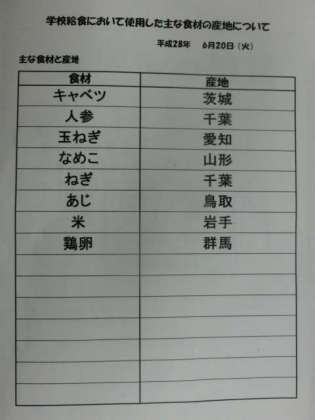 学校給食において使用した主な食材の産地について
平成28年 6月20日（火）
主な食材と産地
食材 産地
キャベツ 茨城
人参 千葉
玉ねぎ 愛知
なめこ 山形
ねぎ 千葉
あじ 鳥取
米 岩手
鶏卵 群馬